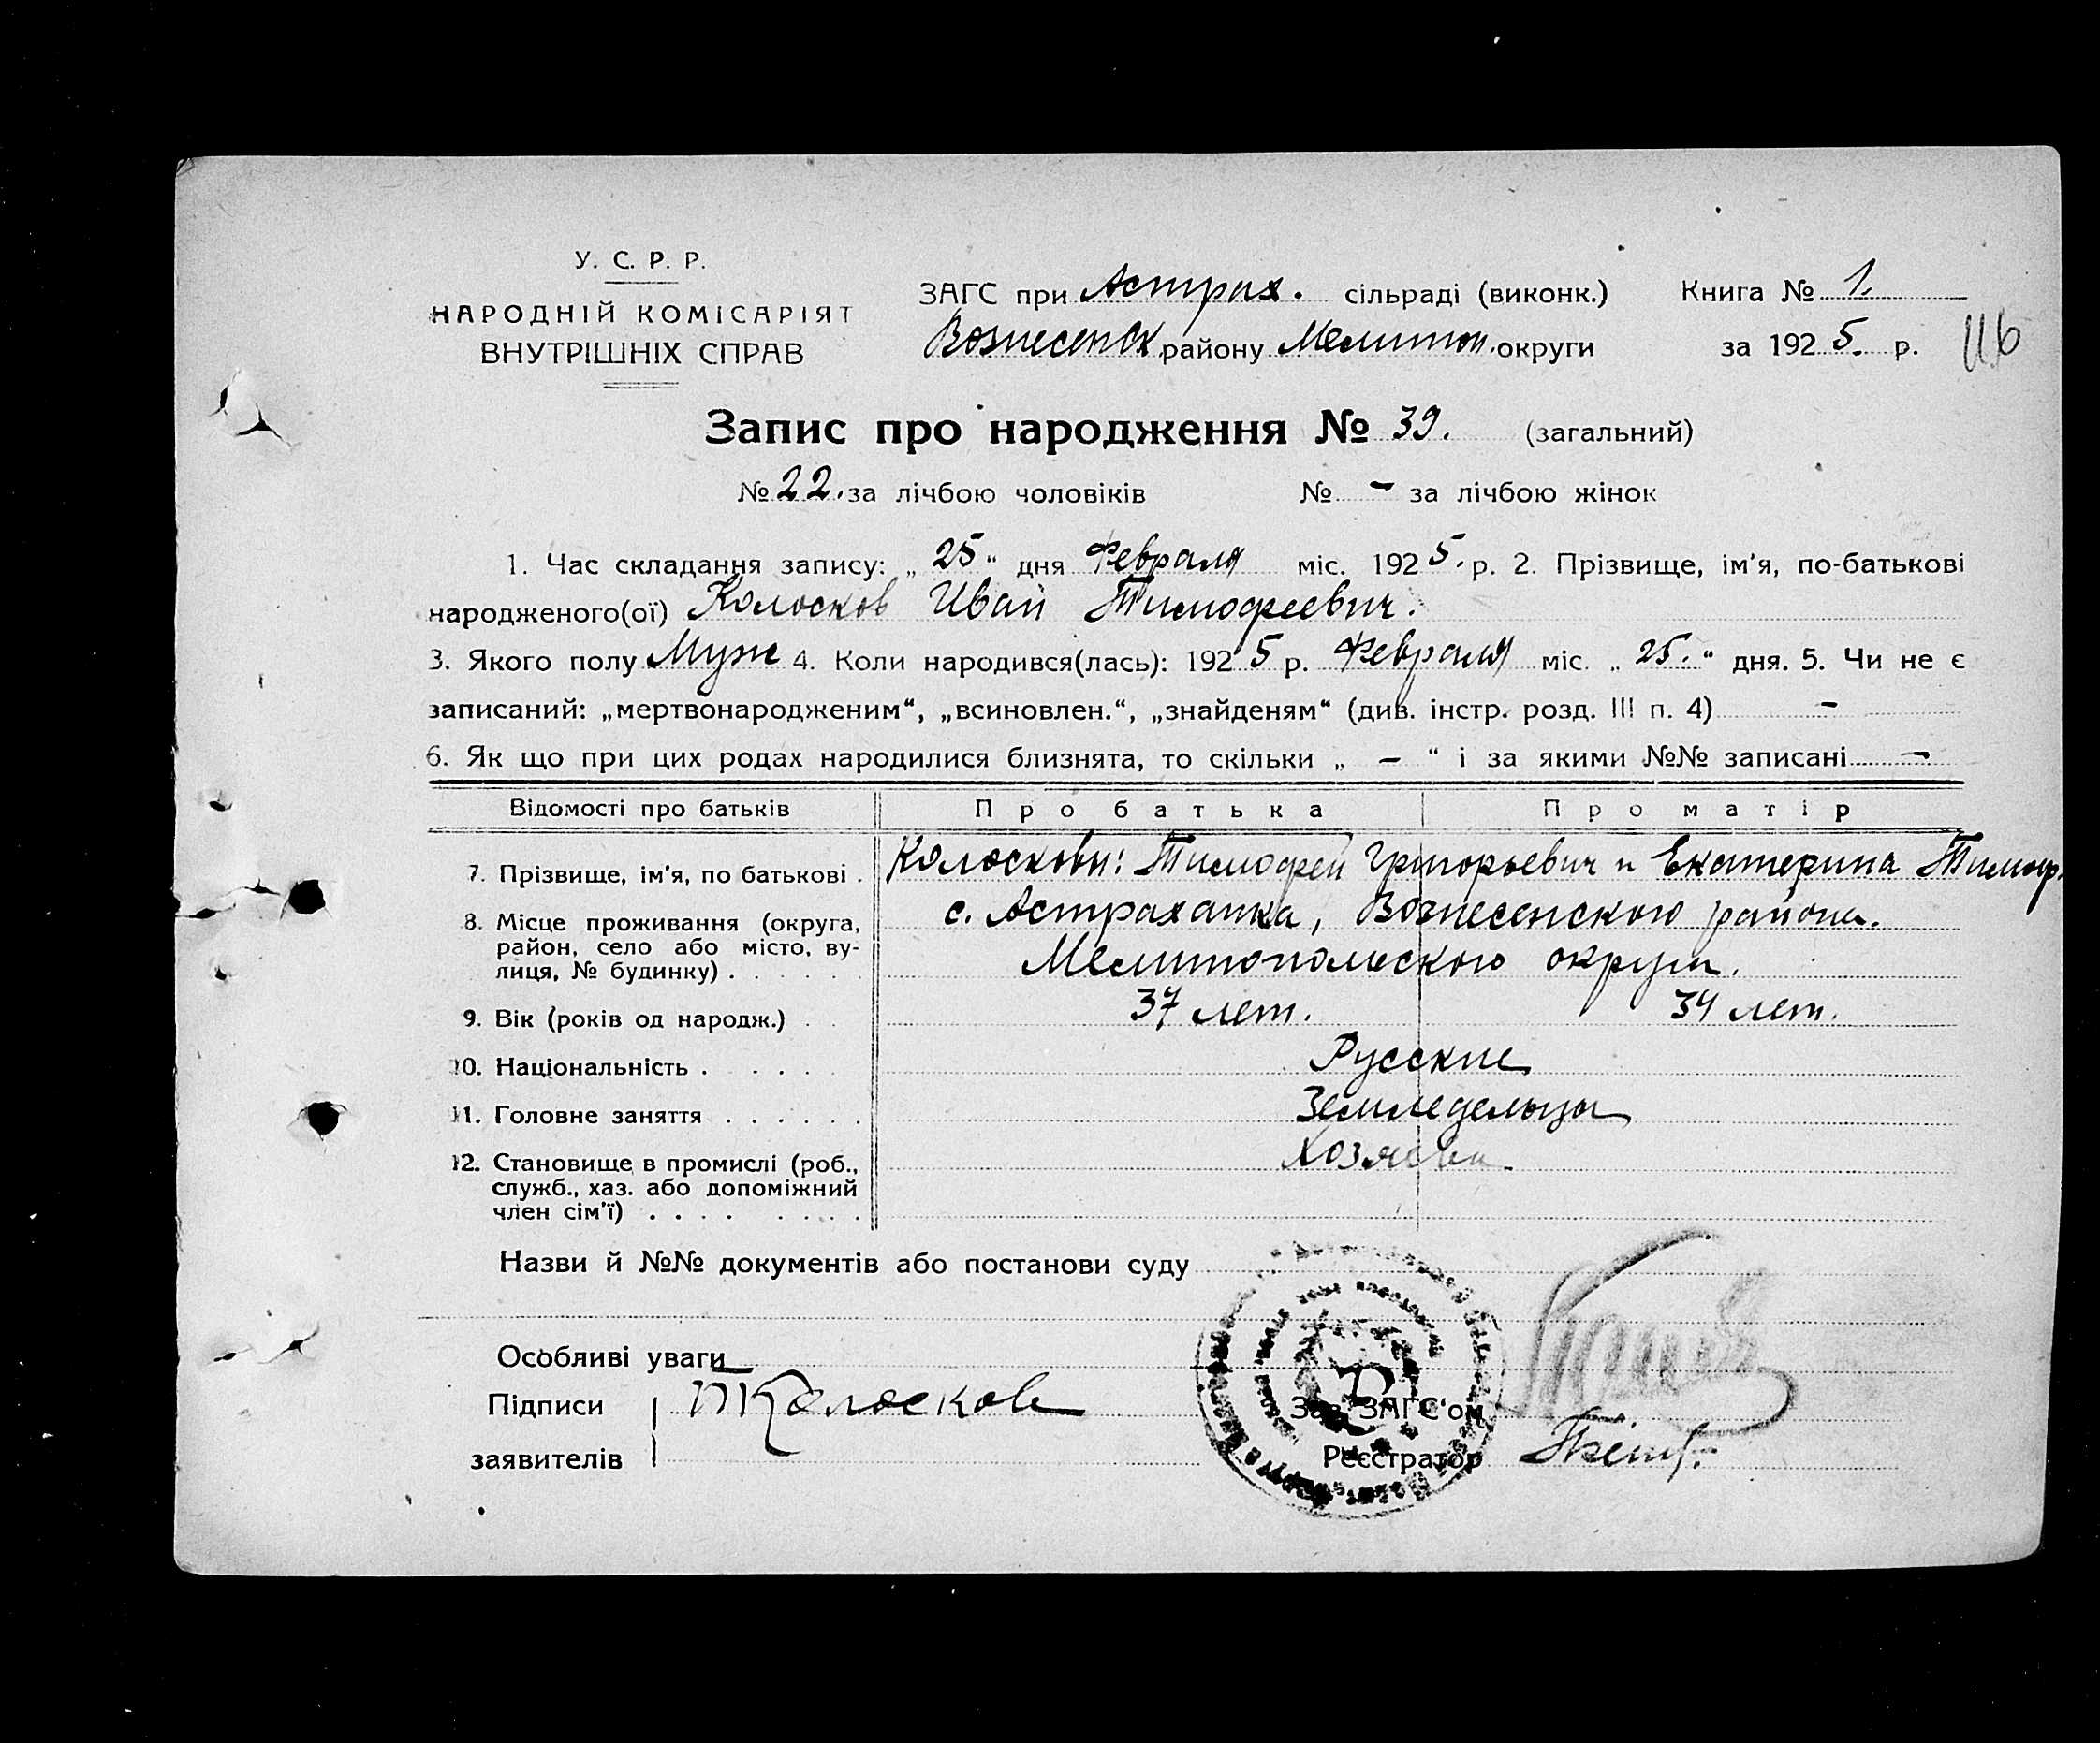 У. С. Р. Р.
НАРОДНІЙ КОМІСАРІЯТ
ВНУТРІШНІХ СПРАВ
ЗАГС при Астрах. сільраді (виконк.)
Вознесенск району Мелитоп. округи
Книга № 1.
за 1925. р.
Запис про народження № 39. (загальний)
№ 22. за лічбою чоловіків № - за лічбою жінок
1. Час складання запису: „25“ дня Февраля міс. 1925. р. 2. Прізвище, ім'я, по-батькові
народженого(ої) Колосков Иван Тимофеевич.
3. Якого полу Муж 4. Коли народився(лась): 1925 р. Февраля міс. „25.“ дня. 5. Чи не є
записаний: „мертвонародженим“, „всиновлен.“, „знайденям“ (див. інстр. розд. III п. 4) -
6. Як що при цих родах народилися близнята, то скільки „ - “ і за якими №№ записані -
Відомості про батьків Про батька Про матір
7. Прізвище, ім'я, по батькові . Колосковы: Тимофей Григорьевич и Екатерина Тимоф.
8. Місце проживання (округа, с. Астраханка, Вознесенского района.
район, село або місто, ву-
лиця, № будинку) . . . . . . Мелитопольского округа.
9. Вік (років од народж.) . . 37 лет. 34 лет.
10. Національність . . . . . . Русские
11. Головне заняття . . . . . . Земледельцы
12. Становище в промислі (роб., Хозяева.
служб., хаз. або допоміжний
член сім'ї) . . . . . . . .
Назви й №№ документів або постанови суду
Особливі уваги
Підписи Т Колосков Зав. ЗАГС'ом
заявителів Реєстратор